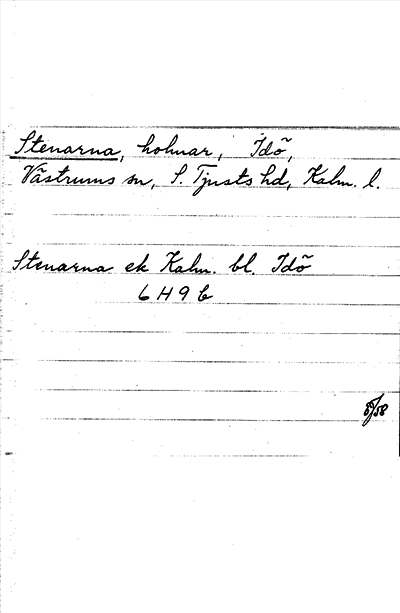 Stenarna, holmar, Idö,
Västrums sn, S. Tjusts hd, Kalm. l.
Stenarna ek Kalm. bl. Idö
6 H 9 b